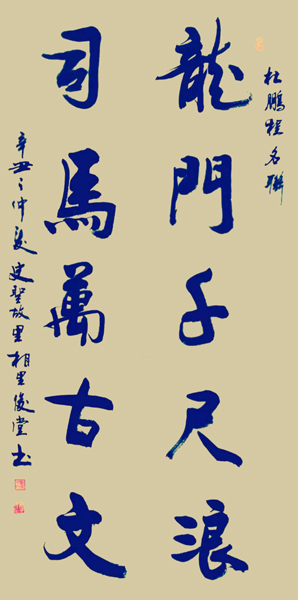 杜鵬程名聯
龍門千尺浪
司馬萬古文
辛丑之仲夏史聖故里相里俊堂书